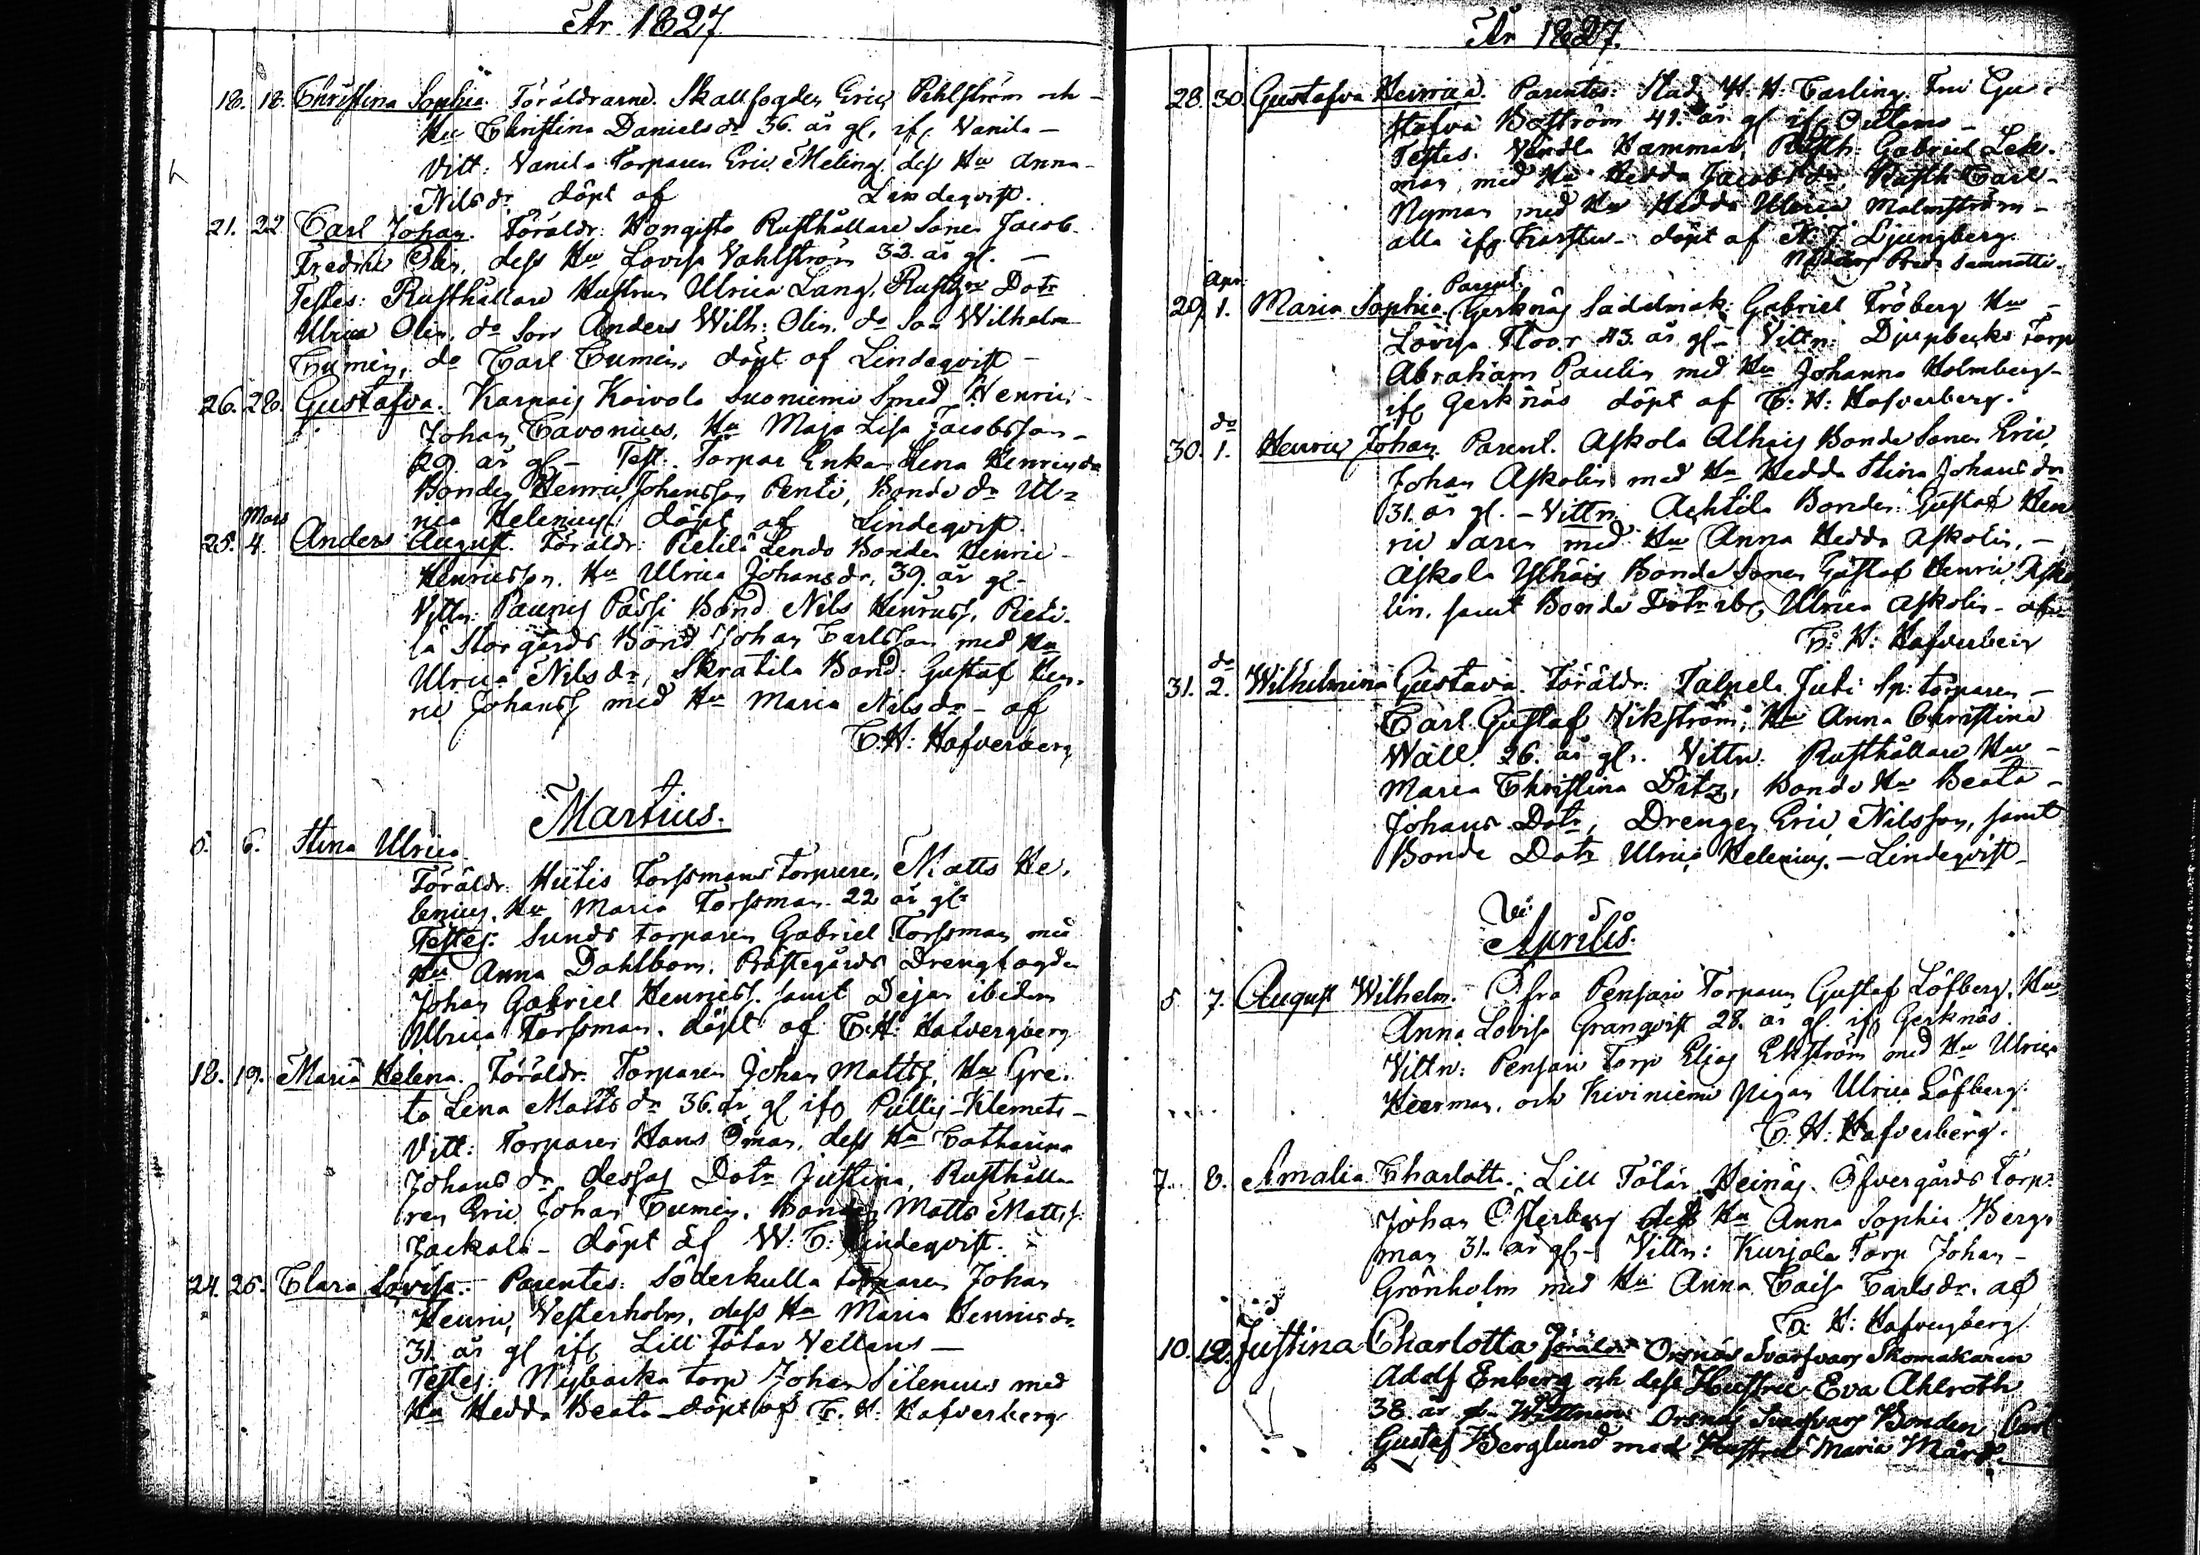 År 1827
18. 18. Christina Sophia. Föräldrarne. Skallfogden Eric Pihlström och
Hu Christina Danielsdr 36. år gl. ifr. Vanila –
Vitt: Vanila Torparen Eric Meling, dess Hu Anna
Nilsdr. döpt af Lindeqvist.
21. 22 Carl Johan. Föräldr: Hongisto Rusthållare Sonen Jacob
Fredric Olin, dess Hu Lovisa Vahlström 33. år gl. –
Testes: Rusthållare Hustrun Ulrica Lang, Dotr
Ulrica Olin, do Son Anders Wilh: Olin, do Son Wilhelm
Cumin, do Carl Cumin. döpt af Lindeqvist –
26. 28. Gustafva. Karnais Koivola Suoniemi Smed Henric
Johan Cavonius, Hu Maja Lisa Jacobsson –
29. år gl – Test. Torpar Enkan Lena Henricsdr
Bonden Henric Johansson Penti, Bonde dr Ul=
rica Helenius. döpt af Lindeqvist.
Mars
25. 4. Anders August. Föräldr: Pietilä Lendo Bonden Henric
Henricsson. Hu Ulrica Johansdr. 39. år gl –
Vittn: Paunis Pässi Bond. Nils Henricss. Pieti
lä Storgårds Bond Johan Carlsson med Hu
Ulrica Nilsdr, Skratila Bond: Gustaf Hen
ric Johanss med Hu Maria Nilsdr – af
C.H: Hafverberg
Martius.
5. 6. Stina Ulrica
Föräldr: Hiitis Forssmans Torparen Matts He
lenius, Hu Maria Forssman 22 år gl
Testes: Sunds Torparen Gabriel Forssman med
Hu Anna Dahlbom. Prästegårds Drengfogden
Johan Gabriel Henricss. samt Dejan ibidem
Ulrica Forssman. döpt af C.H: Hafverberg
18. 19. Maria Helena. Föräldr. Torparen Johan Mattss, Hu Gre
ta Lena Mattsdr 36. år gl ifr. Pullis Klemets –
Vitt: Torparen Hans Öman, dess Hu Catharina
Johansdr dessas Dotr Justina, Rusthålla
ren Eric Johan Cumin. Bonden Matts Mattss
Jackala – döpt af W: C: Lindeqvist.
24. 25. Clara Lovisa. Parentes: Söderkulla torparen Johan
Henric Vesterholm, dess Hu Maria Henricsdr
31. år gl ifr Lill Tötar Vellans –
Testes: Nybacka torp Johan Silenius med
Hu Hedda Beata – döpt af C. H: Hafverberg
År 1827.
28. 30 Gustafva Henrica. Parentes: H. H: Carling, Fru Gu
stafva Boström 41. år gl ifr
Testes. Hammar, Rusth: Gabriel Lek
man med Hu Hedda Jacobsdr, Rusth Carl
Nyman med Hu Hedda Ulrica Malmström –
alla ifr Karstu – döpt af N. J. Ljungberg.
Pred: Sammatti
Apr: Parent:
29. 1. Maria Sophia. Gerknäs Sadelmak: Gabriel Fröberg Hu –
Lovisa Floor 43. år gl – Vittn: Djupbecks Torp
Abraham Paulin med Hu Johanna Holmberg
ifr Gerknäs döpt af C. H: Hafverberg.
do
30. 1. Henric Johan. Parent. Askola Alhais Bonde Sonen Eric
Johan Askolin med Hu Hedda Stina Johansdr
31. år gl. – Vittn. Achtila Bonden Gustaf Hen
ric Saren med Hu Anna Hedda Askolin, –
Askola Ylhäis Bonde Sonen Gustaf Henric Asko
lin, samt Bonde Dotr ib. Ulrica Askolin – af
C: H: Hafverberg
do
31. 2. Wilhelmina Gustava. Föräldr: Talpela Juti Sp: torparen –
Carl Gustaf Vikström, Hu Anna Christina
Wäll. 26. år gl. Vittn: Rusthållare Hu –
Maria Christina Ditz, Bonde Hu Beata –
Johans Dotr, Drengen Eric Nilsson, samt
Bonde Dotr Ulrica Helenius. – Lindeqvist –
Aprilis.
5 7. August Wilhelm. Öfra Pensari Torparen Gustaf Löfberg, Hu
Anna Lovisa Granqvist 28. år gl. ifr Gerknäs
Vittn: Pensari Torp Elias Ekström med Hu Ulrica
Heerman, och Kiviniemi pigan Ulrica Löfberg.
C. H: Hafverberg.
7. 8. Amalia Charlotta. Lill Tötar Heinäs Öfvergårds Torp
Johan Österberg dess Hu Anna Sophia Berg
man 31. år gl – Vittn: Kurjola Torp Johan –
Grönholm med Hu Anna Caisa Carlsdr. af
C: H: Hafverberg
10. 12. Justina Charlotta Föräldr Orsnäs Svarfvars Skomakaren
Adolf Enberg och dess Hustru Eva Ahlroth
38. år gl – Vittnen Orsnäs Svarfvars Bonden Carl
Gustaf Berglund med Hustru Maria